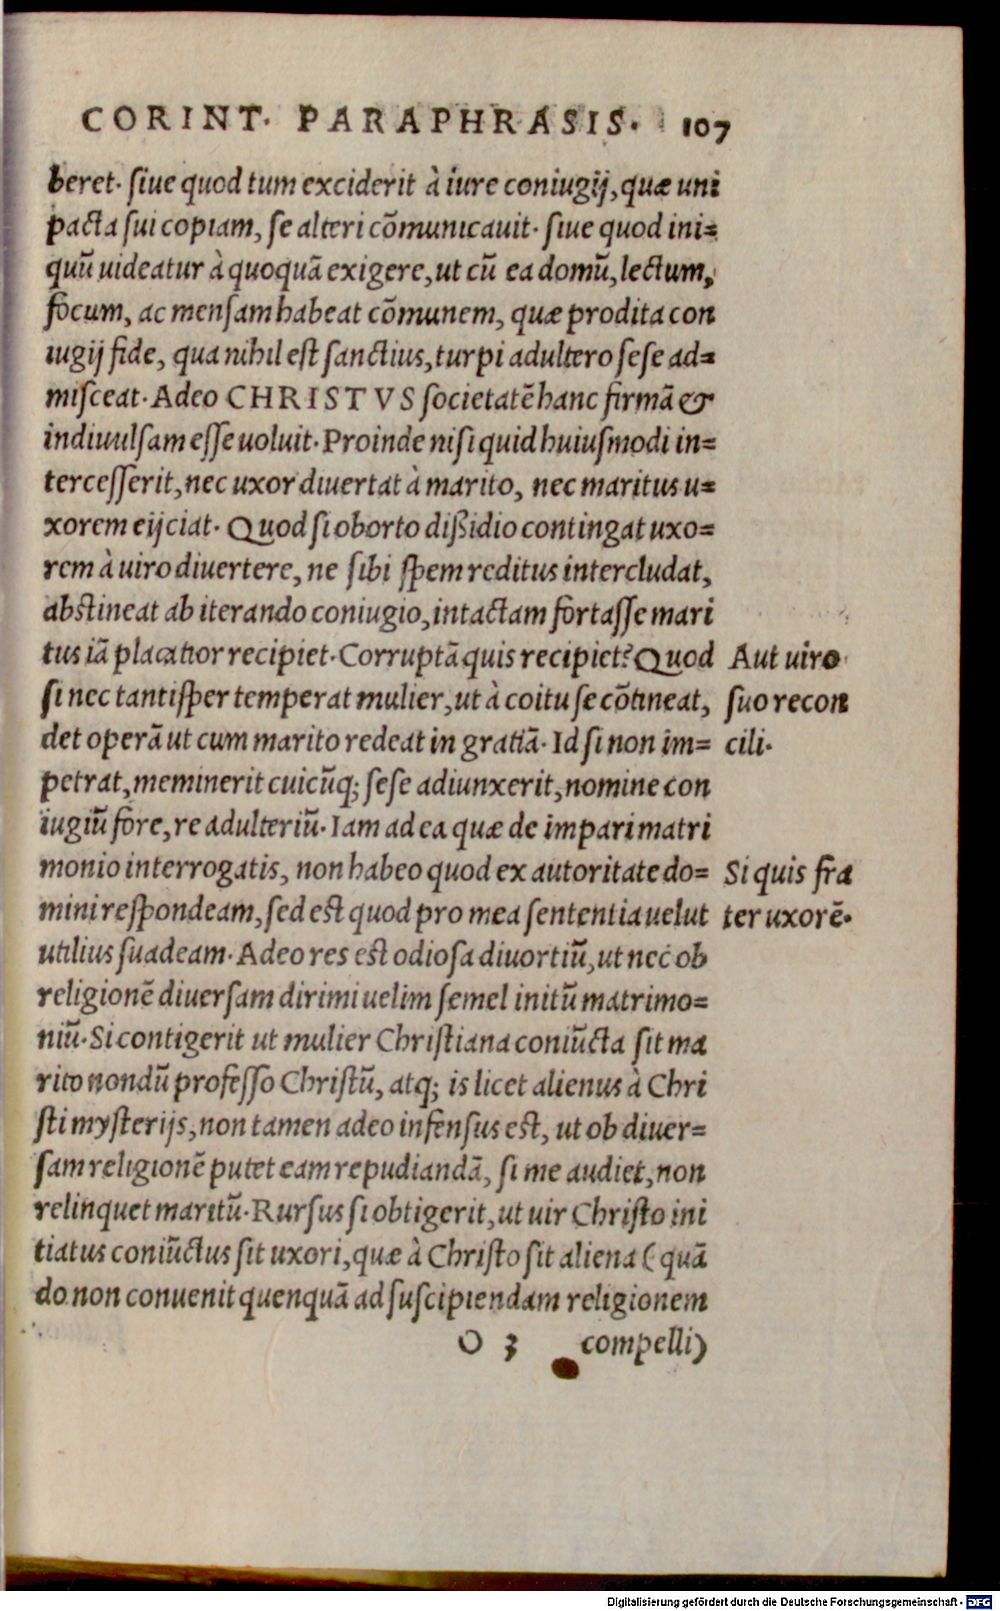 CORINT. PARAPHRASIS. 107
beret. siue quod tum exciderit à iure coniugij, quæ uni
pacta sui copiam, se alteri cõmunicauit. siue quod ini=
quũ uideatur à quoquã exigere, ut cũ ea domũ, lectum,
focum, ac mensam habeat cõmunem, quæ prodita con
iugij fide, qua nihil est sanctius, turpi adultero sese ad=
misceat. Adeo CHRISTVS societatẽ hanc firmã &
indiuulsam esse uoluit. Proinde nisi quid huiusmodi in=
tercesserit, nec uxor diuertat à marito, nec maritus u=
xorem eijciat. Quod si oborto dißidio contingat uxo=
rem à uiro diuertere, ne sibi spem reditus intercludat,
abstineat ab iterando coniugio, intactam fortasse mari
tus iã placatior recipiet. Corruptã quis recipiet? Quod
si nec tantisper temperat mulier, ut à coitu se cõtineat,
det operã ut cum marito redeat in gratiã. Id si non im=
petrat, meminerit cuicũq; sese adiunxerit, nomine con
iugiũ fore, re adulteriũ. Iam ad ea quæ de impari matri
monio interrogatis, non habeo quod ex autoritate do=
mini respondeam, sed est quod pro mea sententia uelut
utilius suadeam. Adeo res est odiosa diuortiũ, ut nec ob
religionẽ diuersam dirimi uelim semel initũ matrimo=
niũ. Si contigerit ut mulier Christiana coniũcta sit ma
rito nondũ professo Christũ, atq; is licet alienus à Chri
sti mysterijs, non tamen adeo infensus est, ut ob diuer=
sam religionẽ putet eam repudiandã, si me audiet, non
relinquet maritũ. Rursus si obtigerit, ut uir Christo ini
tiatus coniũctus sit uxori, quæ à Christo sit aliena (quã
do non conuenit quenquã ad suscipiendam religionem
O 3 compelli)
Aut uiro
suo recon
cili.
Si quis fra
ter uxorẽ.
Digitalisierung gefördert durch die Deutsche Forschungsgemeinschaft - DFG